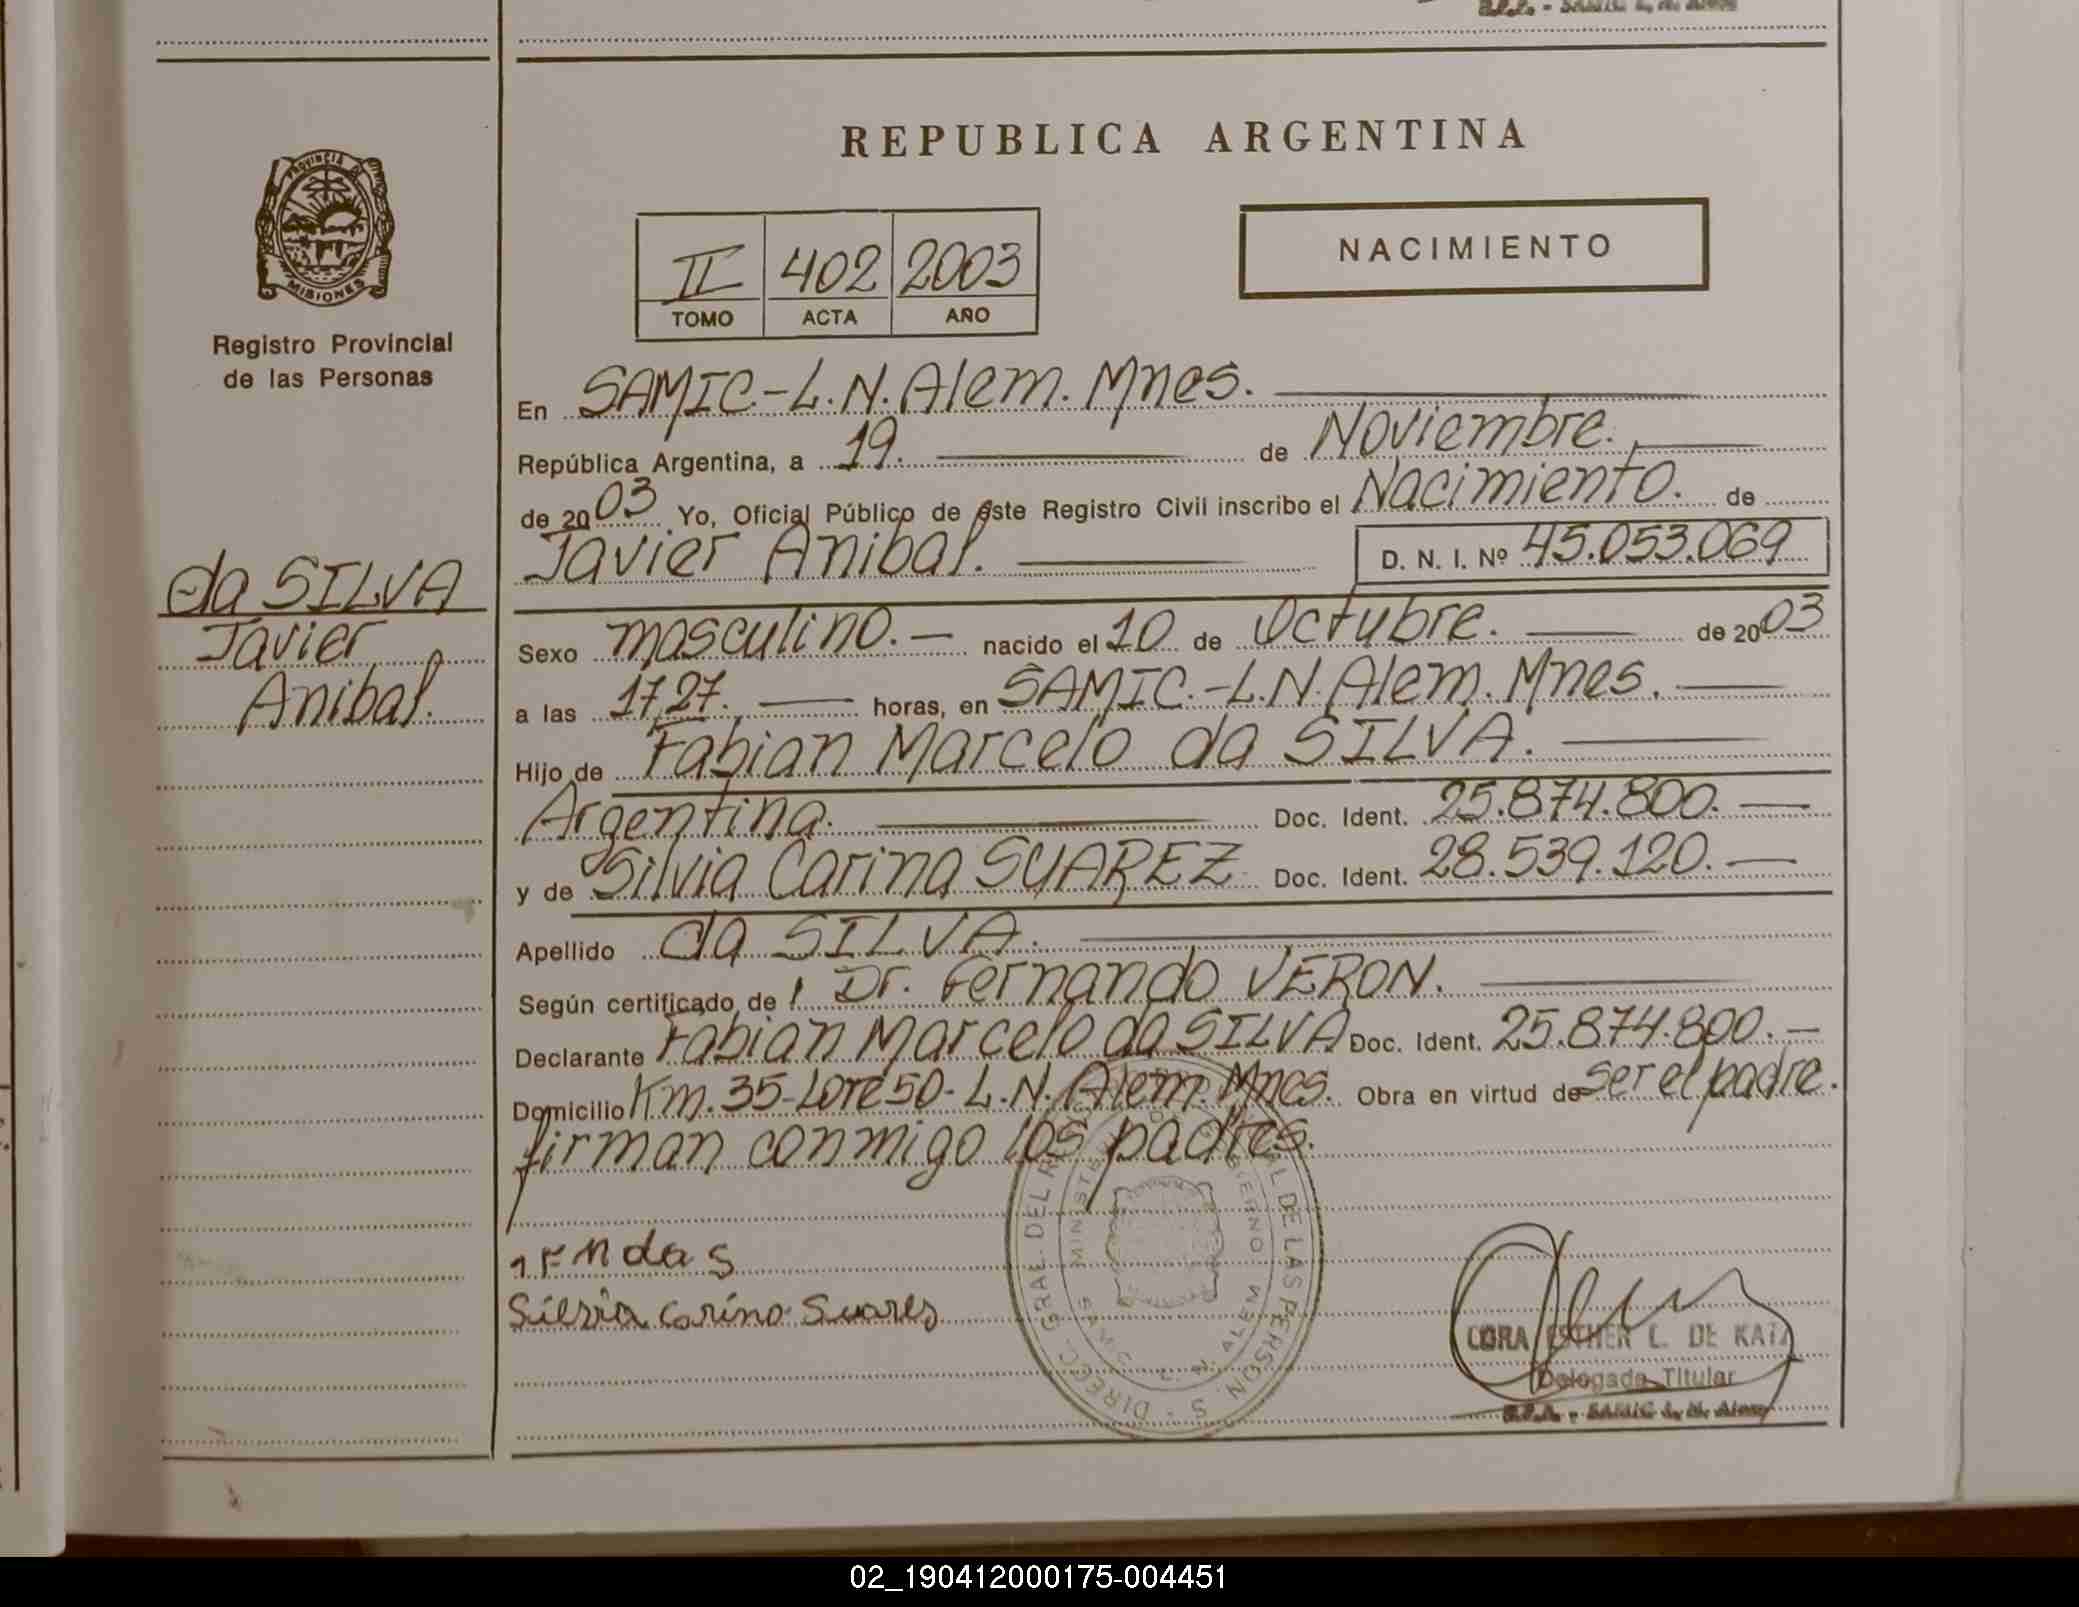 REPUBLICA ARGENTINA
PROVINCIA
MISIONES
Registro Provincial
de las Personas
da SILVA
Javier
Anibal.
II 402 2003
TOMO ACTA AÑO
NACIMIENTO
En SAMIC.-L.N.Alem.Mnes.
República Argentina, a 19. de Noviembre.
de 2003 Yo, Oficial Público de este Registro Civil inscribo el Nacimiento. de
Javier Anibal. D. N. I. Nº 45.053.069
Sexo masculino.- nacido el 10 de Octubre. de 2003
a las 17,27. horas, en SAMIC.-L.N.Alem.Mnes.
Hijo de Fabian Marcelo da SILVA.
Argentina. Doc. Ident. 25.874.800.
y de Silvia Carina SUAREZ Doc. Ident. 28.539.120.
Apellido da SILVA.
Según certificado de Dr. Fernando VERON.
Declarante Fabian Marcelo da SILVA Doc. Ident. 25.874.800.-
Domicilio Km.35-Lote50-L.N.Alem.Mnes. Obra en virtud de ser el padre.
firman conmigo los padres.
da S
Silvia Carina Suares
CORA ESTHER L. DE KATZ
Delegada Titular
02_190412000175-004451